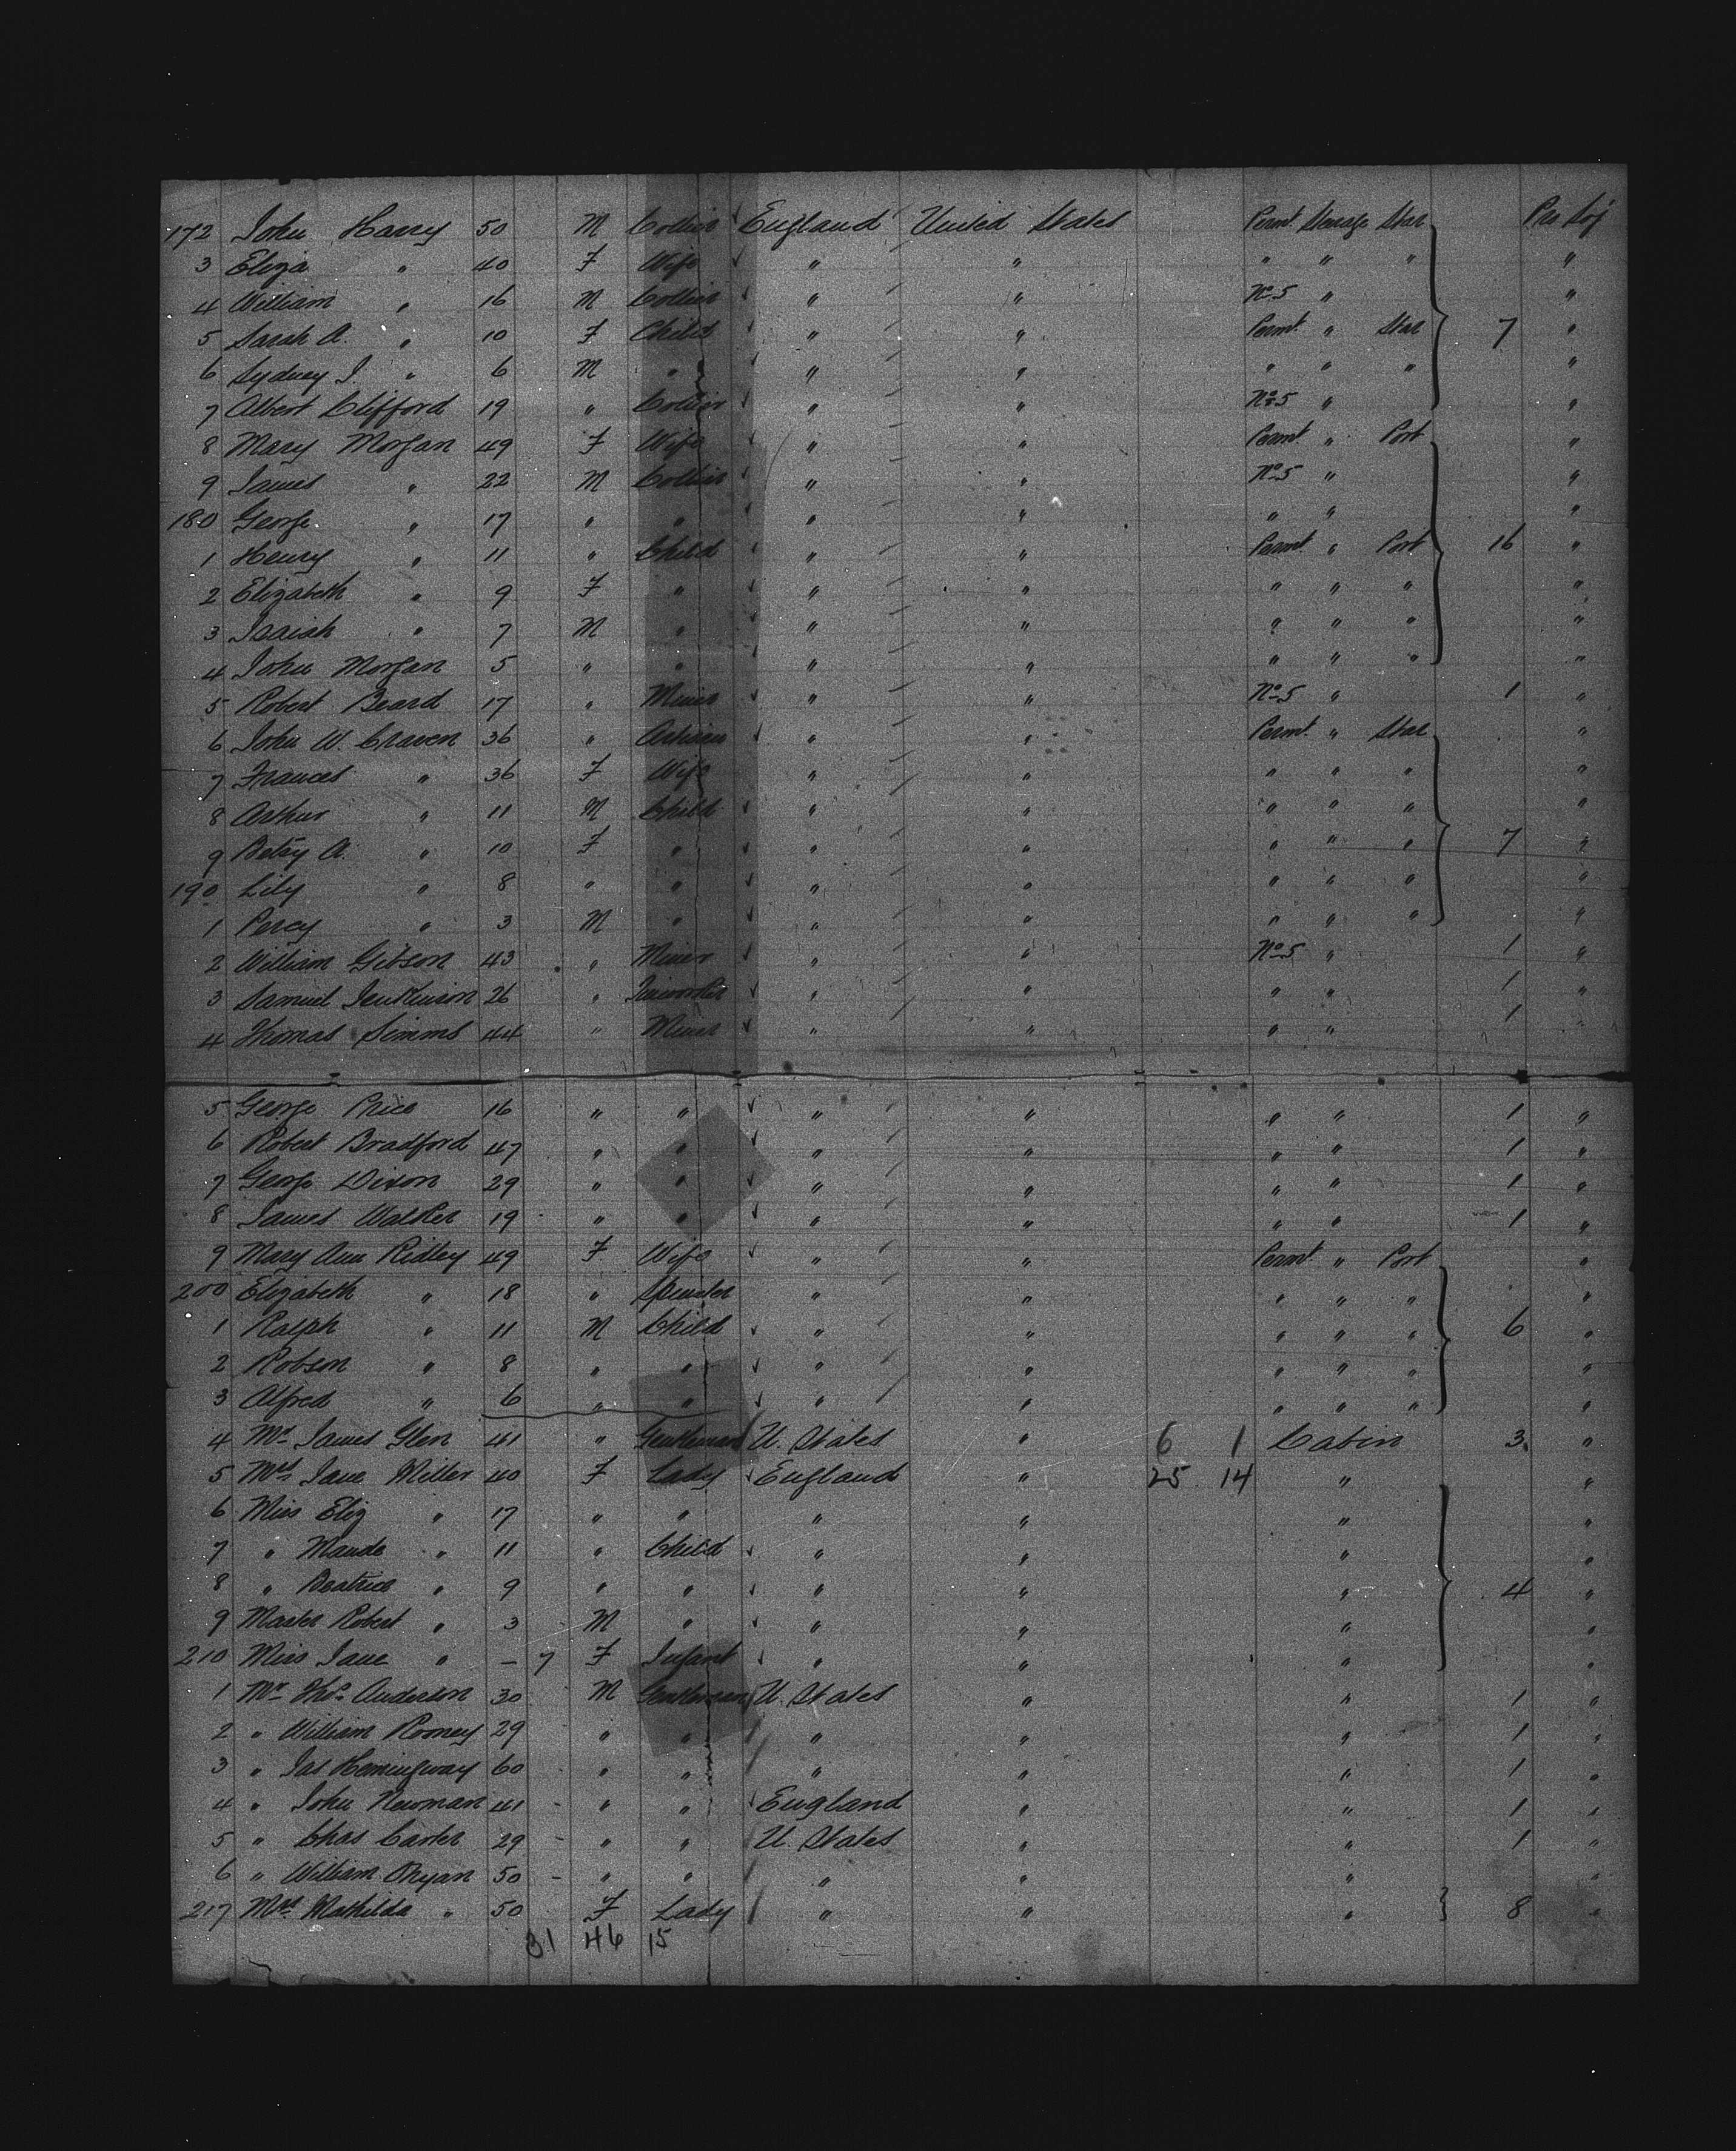 172 John Harry 50 M Collier England United States Permt. Steerage Star 7 Pro Soj
3 Eliza " 40 F Wife " " " " " "
4 William " 16 M Collier " " No 5 " "
5 Sarah A. " 10 F Child " " Permt. " Star 7 "
6 Sydney J. " 6 M " " " " " " "
7 Albert Clifford 19 " Collier " " No 5 " "
8 Mary Morgan 49 F Wife " " Permt. " Port "
9 James " 22 M Collier " " No 5 " "
180 George " 17 " " " " " " "
1 Henry " 11 " Child " " Permt. " Port 16 "
2 Elizabeth " 9 F " " " " " " "
3 Isaiah " 7 M " " " " " " "
4 John Morgan 5 " " " " " " " "
5 Robert Beard 17 " Miner " " No 5 " 1 "
6 John W. Craven 36 " Artisan " " Permt. " Star "
7 Frances " 36 F Wife " " " " " "
8 Arthur " 11 M Child " " " " " "
9 Betsy A. " 10 F " " " " " " 7 "
190 Lily " 8 " " " " " " " "
1 Percy " 3 M " " " " " " "
2 William Gibson 43 " Miner " " No 5 " 1 "
3 Samuel Jenkinson 26 " Tinworker " " " " 1 "
4 Thomas Simms 44 " Miner " " " " 1
5 George Price 16 " " " " " " 1 "
6 Robert Bradford 47 " " " " " " 1 "
7 George Dixon 29 " " " " " " 1 "
8 James Walker 19 " " " " " " 1 "
9 Mary Ann Ridley 49 F Wife " " Permt. " Port "
200 Elizabeth " 18 " Spinster " " " " " "
1 Ralph " 11 M Child " " " " " 6 "
2 Robson " 8 " " " " " " " "
3 Alfred " 6 " " " " " " " "
4 Mr. James Glen 41 " Gentleman U. States " 6 1 Cabin 3 "
5 Mrs. Jane Miller 40 F Lady England " 25 14 " "
6 Miss Eliz " 17 " " " " " "
7 " Maude " 11 " Child " " " "
8 " Beatrice " 9 " " " " " 4 "
9 Master Robert " 3 M " " " " "
210 Miss Jane " – 7 F Infant " " " "
1 Mr. Thos. Anderson 30 M Gentleman U. States " " 1 "
2 " William Rooney 29 " " " " " 1 "
3 " Jas Hemingway 60 " " " " " 1 "
4 " John Newman 41 " " England " " 1 "
5 " Chas Carter 29 " " U. States " " 1 "
6 " William Rhyan 50 " " " " " "
217 Mrs. Mathilda " 50 F Lady " " " 8 "
31 46 15